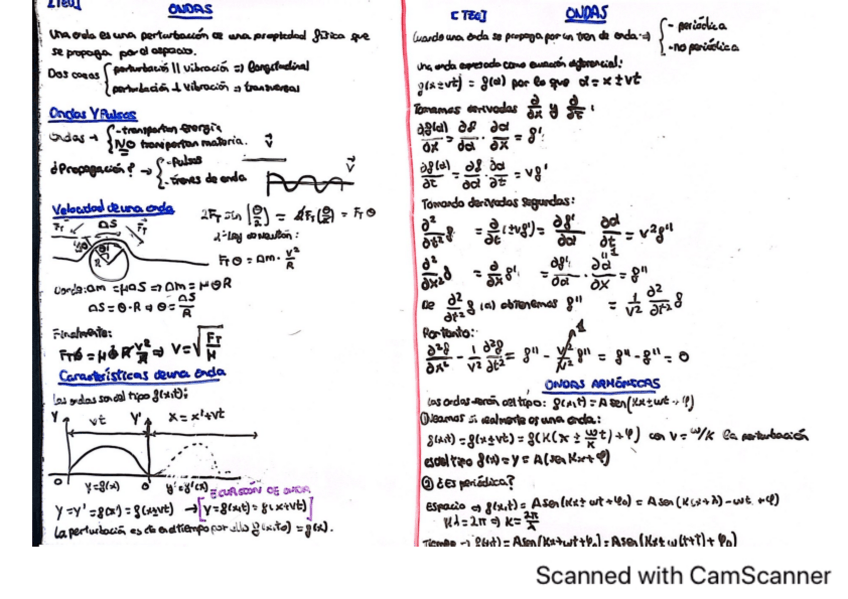 [TEO] ONDAS
Una onda es una perturbación de una propiedad física que
se propaga por el espacio.
Dos casos { perturbación || vibración => longitudinal
perturbación ⊥ vibración => transversal
Ondas Y Pulsos
Ondas → { - transportan energía
NO transportan materia.
v⃗
¿Propagación? → { - Pulsos
- trenes de onda
v⃗
Velocidad de una onda
2F_T sin (θ/2) = 2F_T (θ/2) = F_T θ
2ª ley de Newton:
F_T θ = Δm · v²/R
ΔS
F_T F_T
Donde: Δm = μΔS => Δm = μθR
ΔS = θ·R => θ = ΔS/R
Finalmente:
F_T θ = μθR v²/R => V = √(F_T/μ)
Características de una onda
Las ondas son del tipo f(x,t):
Y vt Y' x = x'+vt
0 Y=f(x) 0' y'=f'(x)
ECUACIÓN DE ONDA
Y = Y' = f(x') = f(x±vt) → [Y=f(x,t) = f(x±vt)]
La perturbación es de en el tiempo por ello f(x,t₀) = f(x).
[TEO] ONDAS
Cuando una onda se propaga por un tren de onda => { - periódica
- no periódica
Una onda expresada como ecuación diferencial:
f(x±vt) = f(α) por lo que α = x ± vt
Tomamos derivadas ∂/∂x y ∂/∂t:
∂f(α)/∂x = ∂f/∂α · ∂α/∂x = f'
∂f(α)/∂t = ∂f/∂α · ∂α/∂t = vf'
Tomando derivadas segundas:
∂²/∂t² f = ∂/∂t (±vf') = ∂f'/∂α ∂α/∂t = v²f''
∂²/∂x² f = ∂/∂x f' = ∂f'/∂α · ∂α/∂x = f''
De ∂²/∂t² f(α) obtenemos f'' = 1/v² ∂²/∂t² f
Por tanto:
∂²f/∂x² - 1/v² ∂²f/∂t² = f'' - v²/v² f'' = f'' - f'' = 0
ONDAS ARMÓNICAS
Las ondas serán del tipo: f(x,t) = A sen(Kx ± wt + φ)
① Veamos si realmente es una onda:
f(x,t) = f(x±vt) = f(K(x ± w/K t) + φ) con v = w/K la perturbación
es del tipo f(x) = y = A(sen Kx + φ)
② ¿Es periódica?
Espacio => f(x,t) = A sen(Kx ± wt + φ₀) = A sen(K(x+λ) - wt + φ)
Kλ = 2π => K = 2π/λ
Tiempo → f(x,t) = A sen(Kx+wt+φ₀) = A sen(Kx ± w(t+T) + φ₀)
Scanned with CamScanner